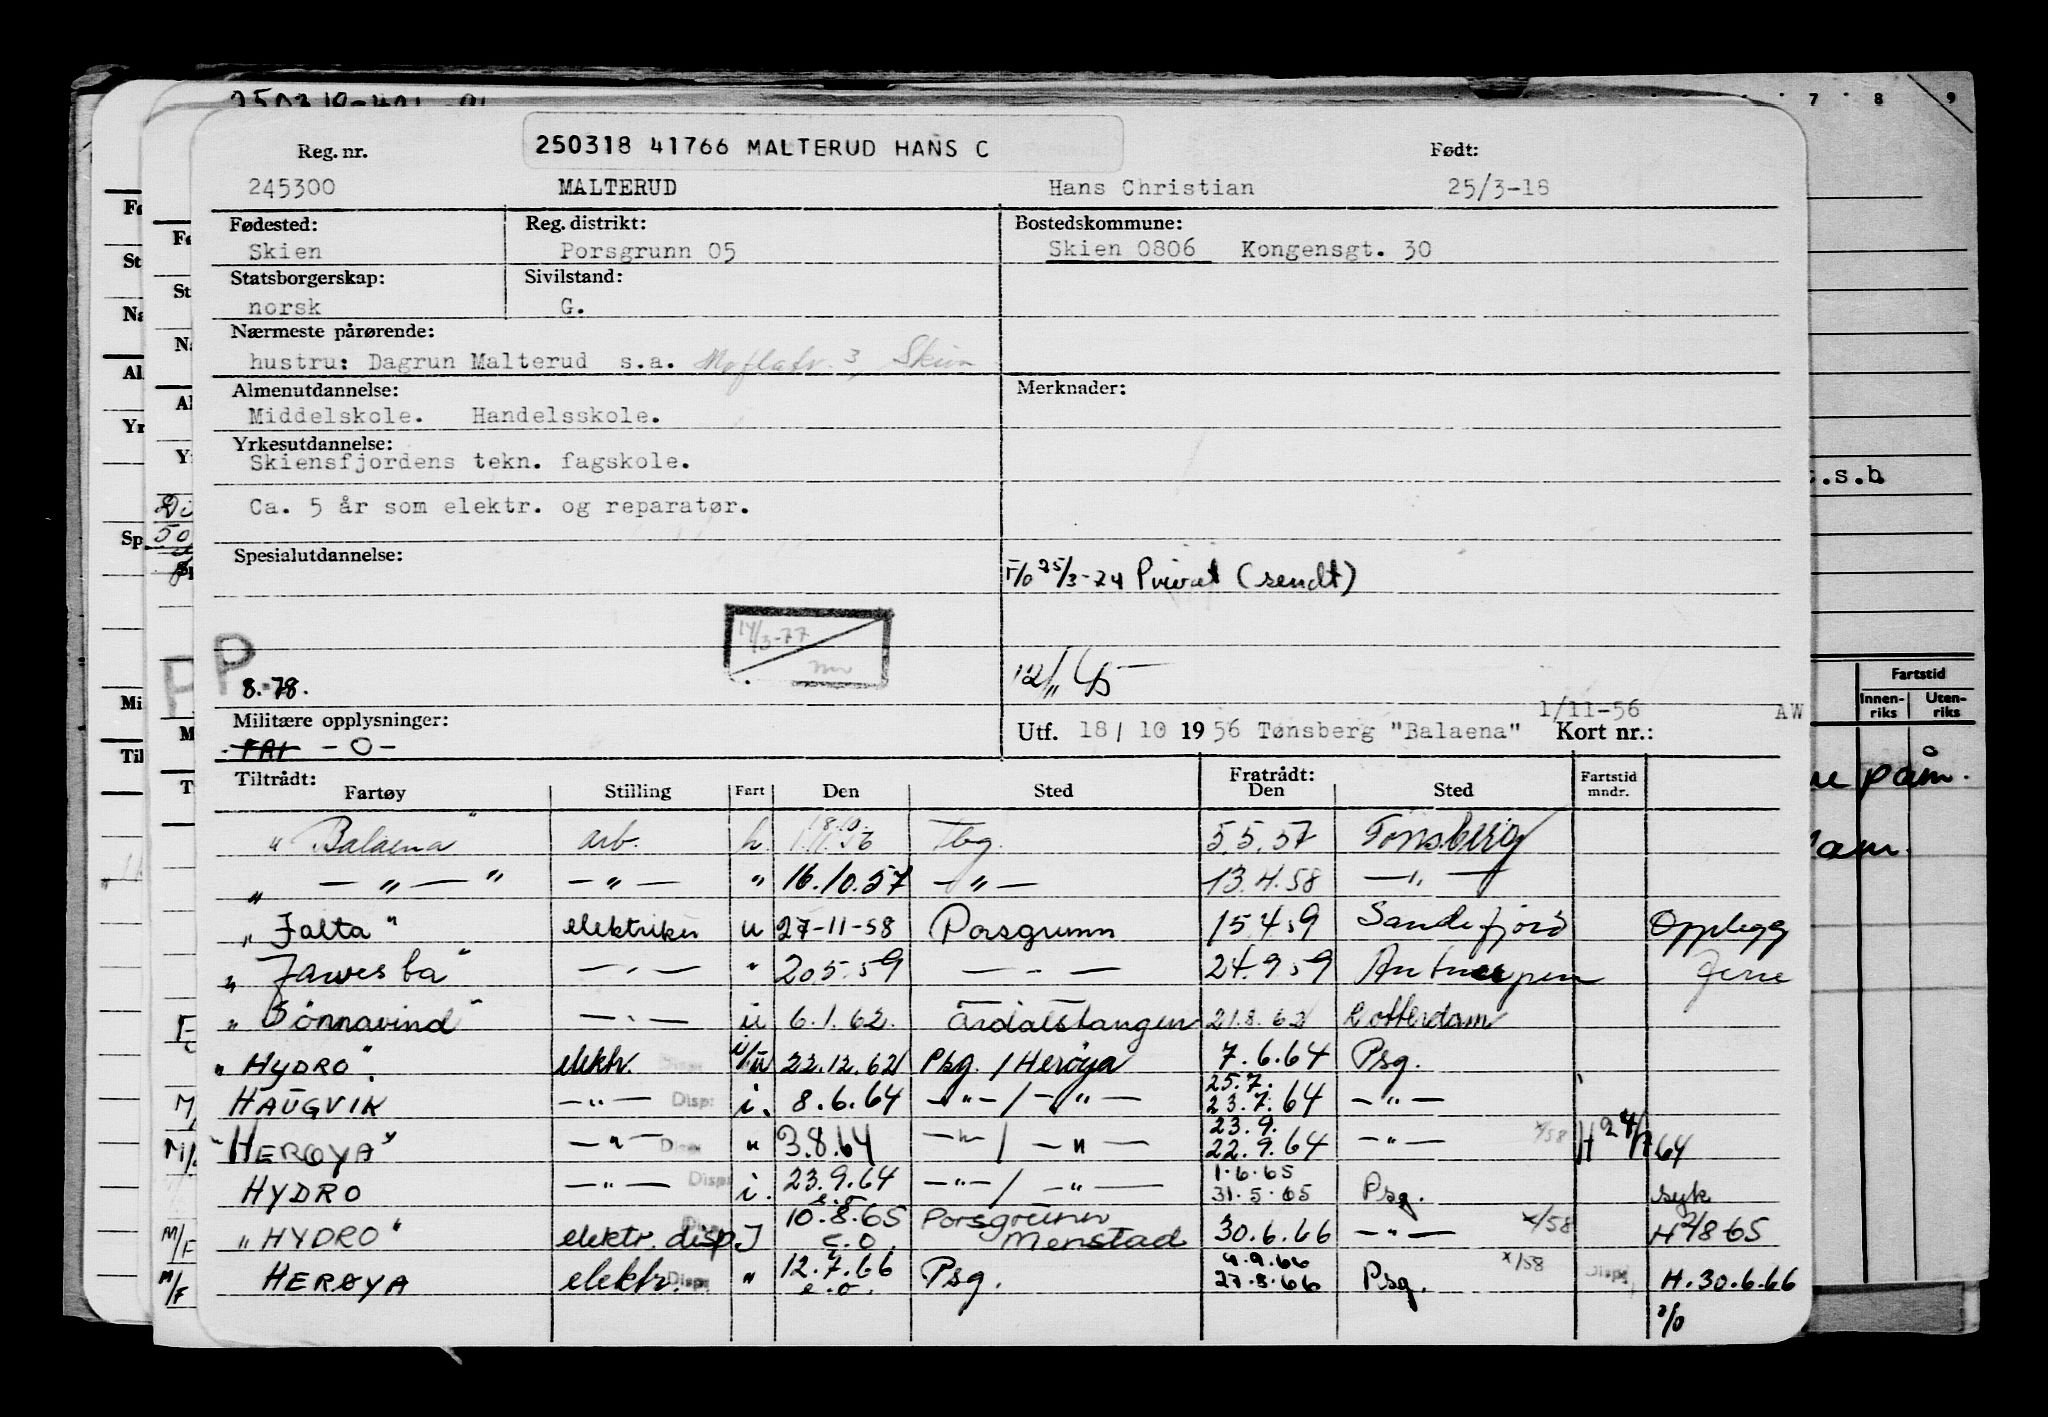 250318 41766 MALTERUD HANS C
Reg. nr. Født:
245300 MALTERUD Hans Christian 25/3-18
Fødested: Reg. distrikt: Bostedskommune:
Skien Porsgrunn 05 Skien 0806 Kongensgt. 30
Statsborgerskap: Sivilstand:
norsk G.
Nærmeste pårørende:
hustru: Dagrun Malterud s.a. 3, Skien
Almenutdannelse: Merknader:
Middelskole. Handelsskole.
Yrkesutdannelse:
Skiensfjordens tekn. fagskole.
Ca. 5 år som elektr. og reparatør.
Spesialutdannelse:
F/O 25/3-74 Privat (sendt)
14/3-77
P
8.-78.
12/11 65
Militære opplysninger: 1/11-56 AW
FRI -O- Utf. 18/10 1956 Tønsberg "Balaena" Kort nr.:
Tiltrådt: Fratrådt: Fartstid
Fartøy Stilling Fart Den Sted Den Sted mndr.
"Balaena" arb. h. 18.10. 1.11.56 Tbg. 5.5.57 Tønsberg
" — " — " — " — " 16.10.57 — " — 13.4.58 — " —
"Jalta" elektriker u 27-11-58 Porsgrunn 15.4.59 Sandefjord Opplegg
"Jawesba" — " — " 20.5.59 — " — 24.9.59 Antwerpen
"Sönnavind" — " — u 6.1.62. Årdalstangen 21.8.62 Rotterdam
"HYDRO". elektr. Disp: i/u 22.12.62 Psg. / Herøya 7.6.64 Psg.
HAUGVIK — " — Disp: i. 8.6.64 — " — / — " — 25.7. 23.7.64 — " —
"HERØYA" — " — Disp: " 3.8.64 — " — / — " — 23.9. 22.9.64 — " — x/58 H 24/7 64
HYDRO — " — Disp: i. 23.9.64 e.o. — " — / — " — 1.6.65 31.5.65 Psg. syk
M/F "HYDRO" elektr. disp I 10.8.65 e.o. Porsgrunn Menstad 30.6.66 — " — x/58 H 2/8 65
M/F HERØYA elektr. Disp: " 12.7.66 e.o. Psg. 4.9.66 27.8.66 Psg. x/58 Disp: H. 30.6.66
7 8 9
t.s.b.
Fartstid
Innen-riks Uten-riks
påm.